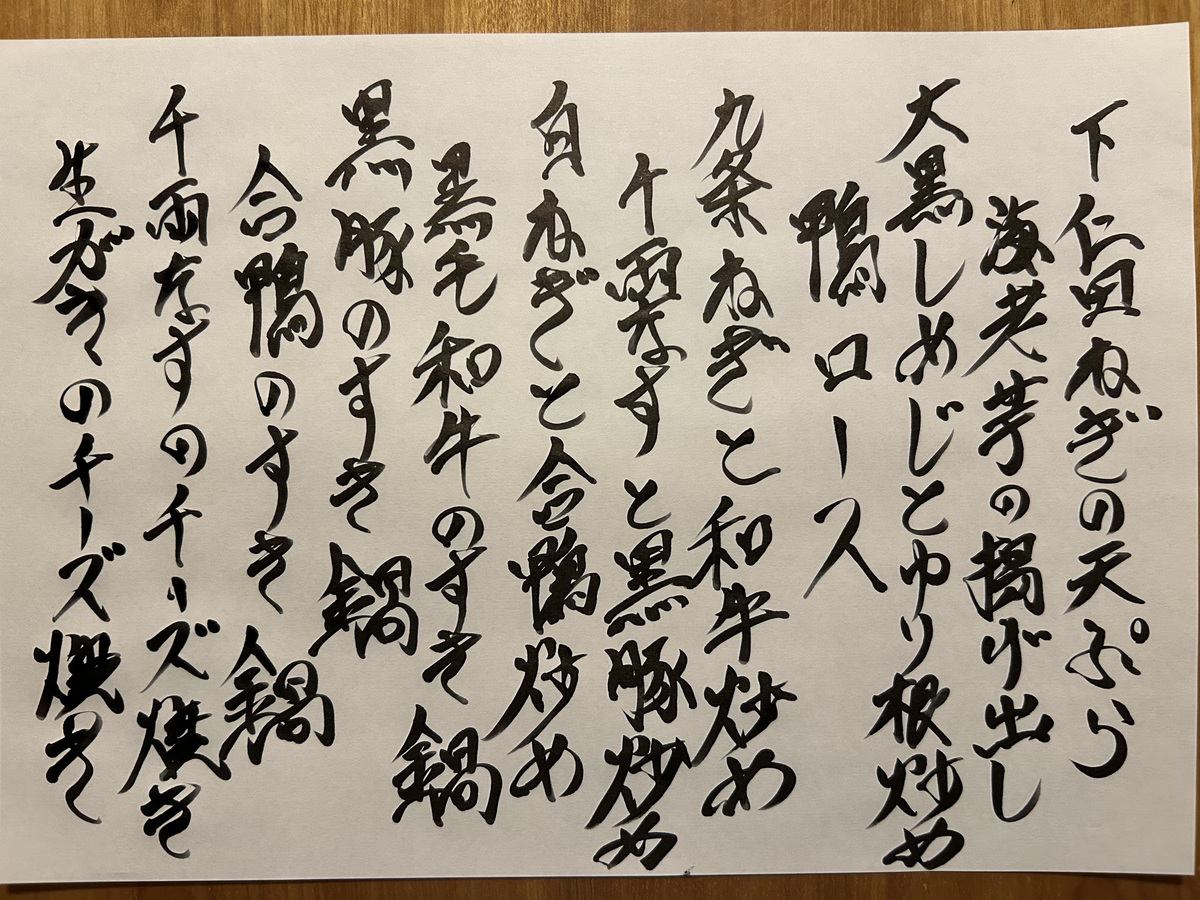 下仁田ねぎの天ぷら
海老芋の揚げ出し
大黒しめじとゆり根炒め
鴨ロース
九条ねぎと和牛炒め
千両なすと黒豚炒め
白ねぎと合鴨炒め
黒毛和牛のすき鍋
黒豚のすき鍋
合鴨のすき鍋
千両なすのチーズ焼き
生がきのチーズ燻き